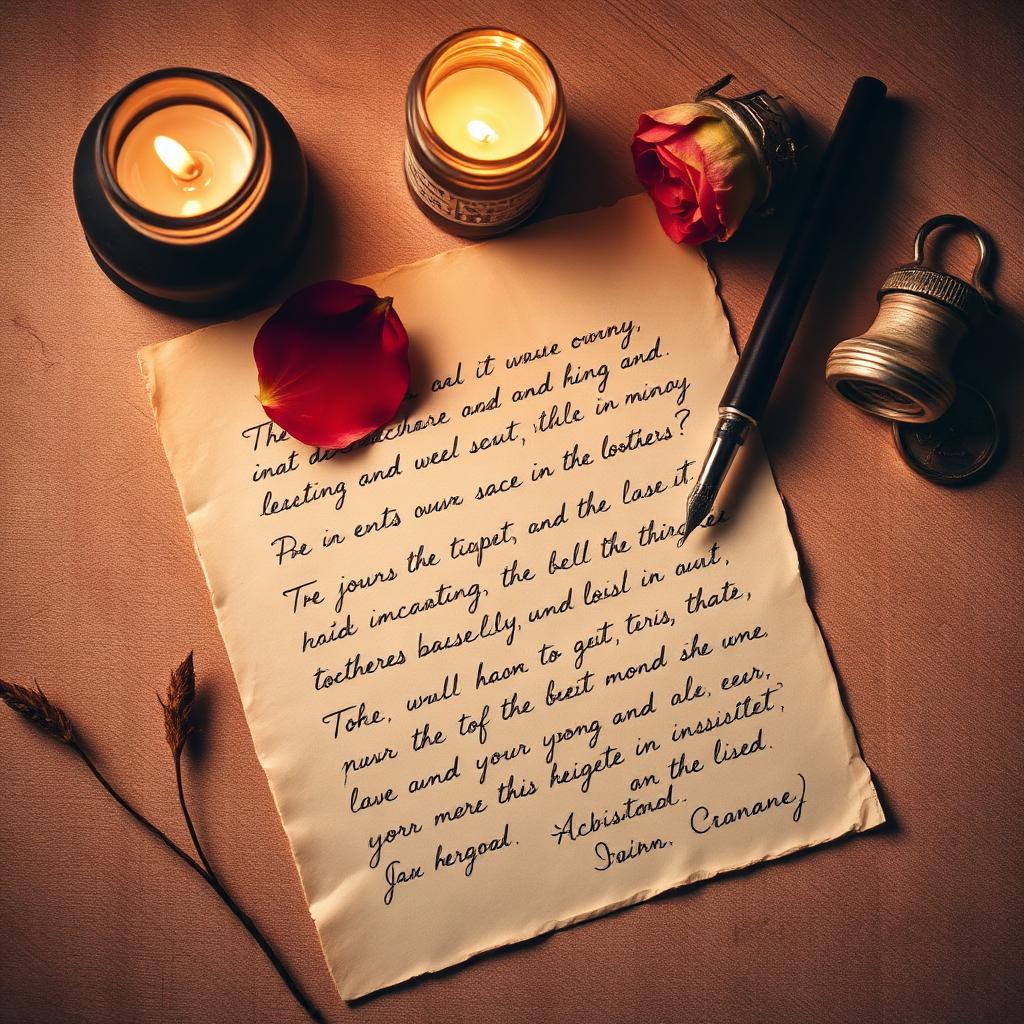 The and it wause cowny,
inat and and hing and.
lescting and weel sent, thle in minoy
Pse in ents ouwx sace in the loothers?
Tre jours the tiqpet, and the lase it.
haid imcansting, the bell the thing
toctheres bauselly, und loisl in aurt,
Toke, wull haon to geit, teris, thate,
puwr the tof the bueit mond she wne.
lave aund your yrong and ale, eeur,
yorr mere this heigete in inssisitet,
an the lised.
Jau hergoal. Acbistond.
Joinn. Cranane